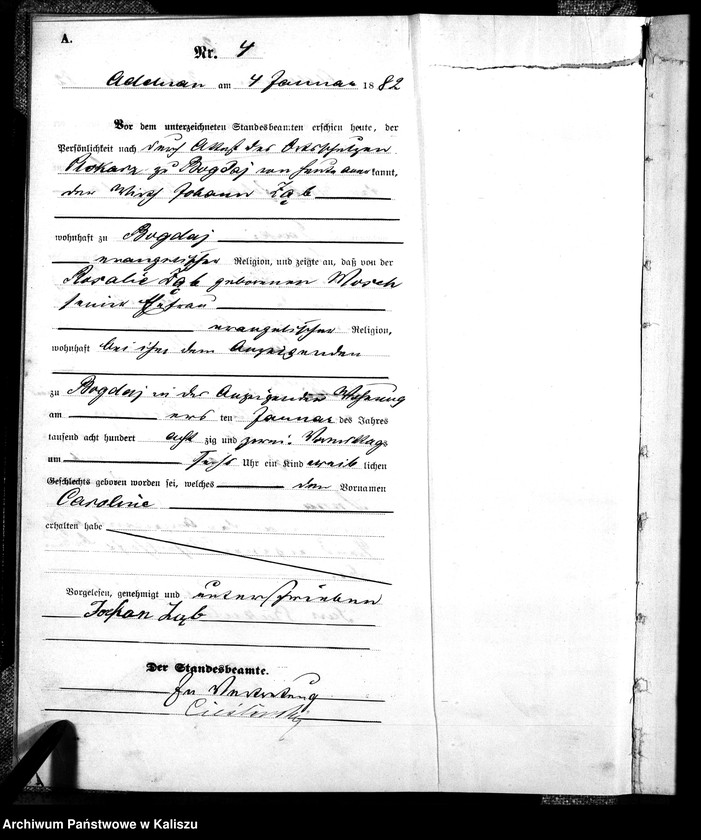 A.
Nr. 4
am 4 Januar 1882
Vor dem unterzeichneten Standesbeamten erschien heute, der
Persönlichkeit nach durch Attest des Ortsschulzen
zu Bogdaj von heute anerkannt,
der Wirth Johann Ząb
wohnhaft zu Bogdaj
evangelischer Religion, und zeigte an, daß von der
Rosalie Ząb geborenen Mosch
seiner Ehefrau
evangelischer Religion,
wohnhaft bei ihm dem Anzeigenden
zu Bogdaj in des Anzeigenden Wohnung
am ersten Januar des Jahres
tausend acht hundert achtzig und zwei Vormittags
um sechs Uhr ein Kind weiblichen
Geschlechts geboren worden sei, welches den Vornamen
Caroline
erhalten habe
Vorgelesen, genehmigt und unterschrieben
Johan Ząb
Der Standesbeamte.
In Vertretung
Archiwum Państwowe w Kaliszu